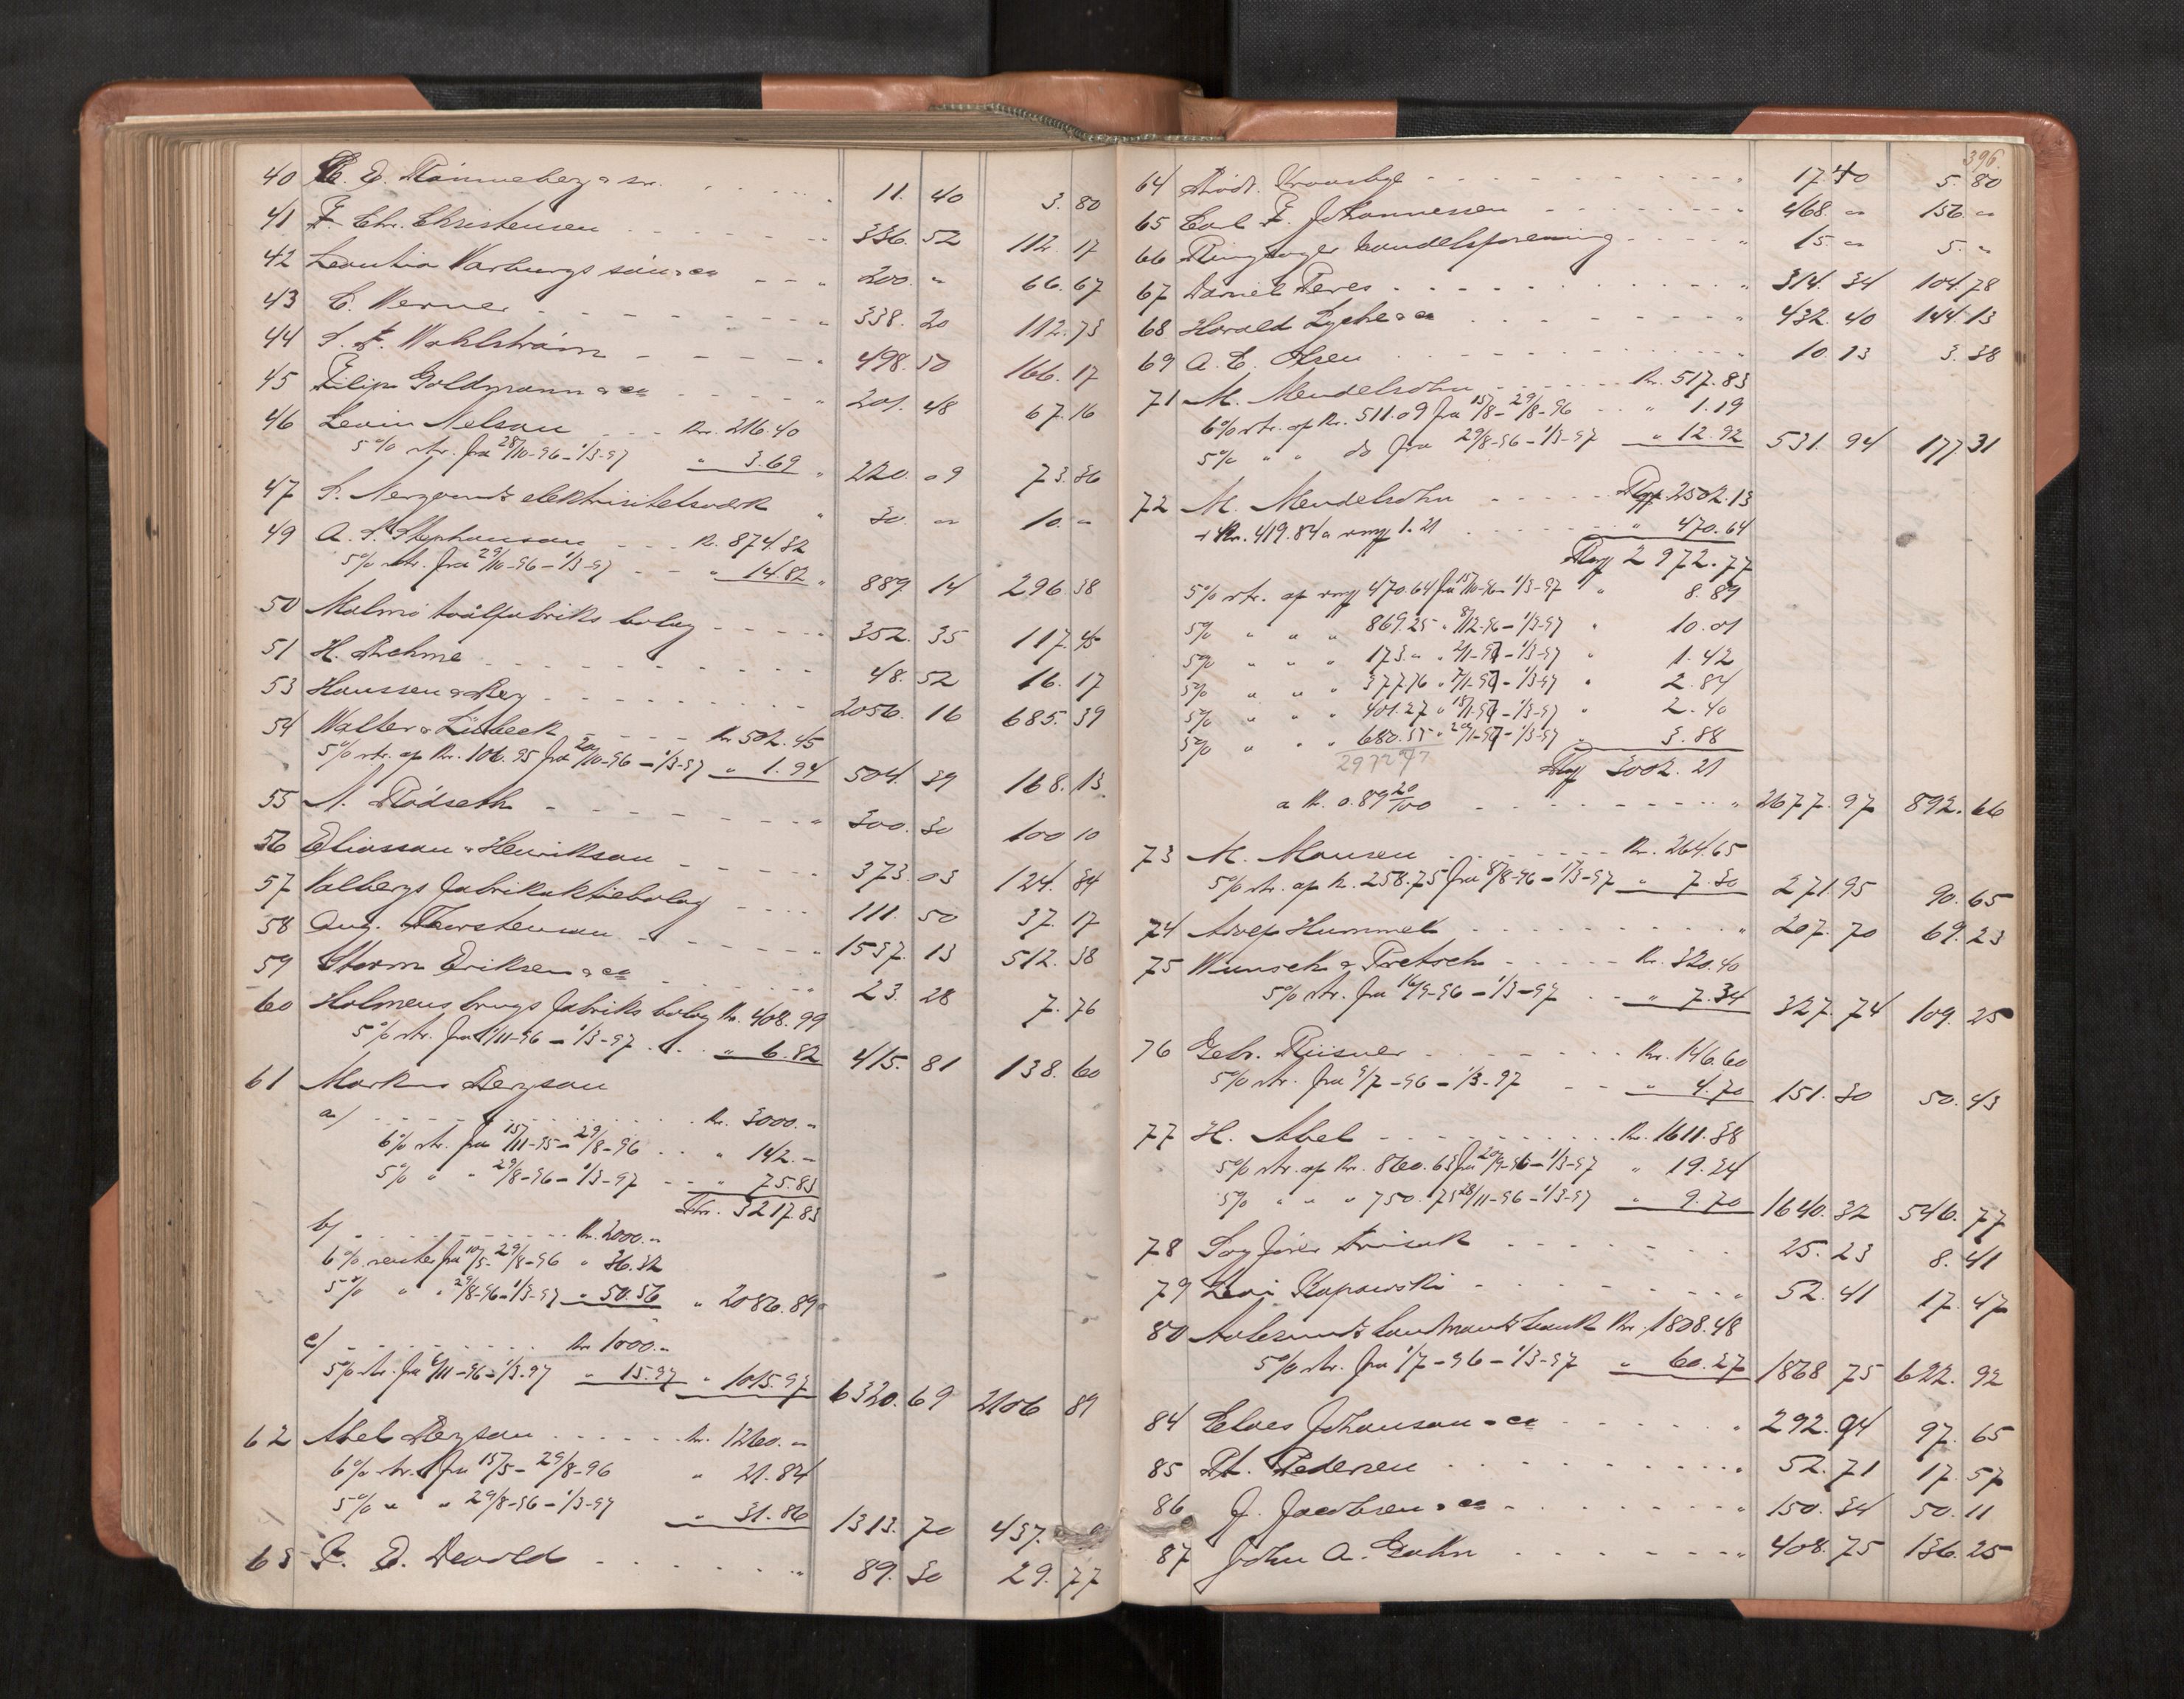 40 C. E. Rönneberg & sn. 11. 40 3. 80
41 F. Chr. Christensen 336. 52 112 17
42 Leontin Warburgs sön & co 200. " 66. 67
43 C. Werner 338. 20 112. 73
44 S. F. Wahlström 498. 50 166. 17
45 Filip Goldmann & co 201. 48 67. 16
46 Levin Nelson Kr. 216.40
5% rtr. fra 28/10-96-1/3-97 " 3.69 220. 09 73. 36
47 S. elektrisitetsverk 30. " 10. "
49 A. S. Stephansen K. 874.32
5% rtr. fra 29/10-96-1/3-97 " 14.82 889 14 296. 38
50 Malmö toålfabriks bolag 352. 35 117. 45
51 H. Rehme 48. 52 16. 17
53 Hanssen & Berg 2056. 16 685. 39
54 Walter & Lübeck Kr 502.45
5% rtr. af Kr. 106.95 fra 20/10-96-1/3-97 " 1.94 504. 39 168. 13
55 N. Rödseth 300. 30 100 10
56 Eliasson & Henrikson 373. 03 124. 34
57 Valbergs fabriksaktiebolag 111. 50 37. 17
58 Aug. Thorstenson 1537. 13 512. 38
59 Storm Eriksen & co 23. 28 7. 76
60 Holmens brugs fabriks bolag Kr. 408.99
5% rtr. fra 1/11-96-1/3-97 " 6.82 415. 81 138. 60
61 Markus Bergson
a/ Kr. 3000.-
6% rtr. fra 15/11-95-29/8-96 " 142.-
5% " " 29/8-96-1/3-97 " 75.83
Kr. 3217.83
b/ Kr. 2000.-
6% renter fra 10/5-29/8-96 " 36.32
5% " " 29/8-96-1/3-97 " 50.56 " 2086.89
c/ Kr 1000.-
5% rtr. fra 6/11-96-1/3-97 " 15.97 " 1015.97 6320. 69 2106 89
62 Abel Bergson Kr. 1260.-
6% rtr. fra 15/5-29/8-96 " 21.84
5% " " 29/8-96-1/3-97 " 31.86 1313. 70 437.
63 F. E. Devold 89. 30 29. 77
396.
64 Kronsbye 17.40 5. 80
65 Carl F. Johannessen 468. " 156. "
66 Ringsager handelsforening 15. " 5. "
67 Daniel Peres 314. 34 104. 78
68 Harald Lyche & co 432. 40 144. 13
69 A. E. Olsen 10. 13 3. 38
71 M. Mendelsohn Kr. 517.83
6% rtr. af Kr. 511.09 fra 15/8-29/8-96 " 1.19
5% " " do fra 29/8-96-1/3-97 " 12.92 531. 94 177. 31
72 M. Mendelsohn Rmf 2502.13
+ Kr. 419.84 a rmf 1.21 " 470.64
Rmf 2972.77
5% rtr. af rmf 470.64 fra 15/10-96-1/3-97 " 8.89
5% " " " 869.25 " 8/12-96-1/3-97 " 10.01
5% " " " 173.- " 2/1-97-1/3-97 " 1.42
5% " " " 377.76 " 7/1-97-1/3-97 " 2.84
5% " " " 401.27 " 15/1-97-1/3-97 " 2.40
5% " " " 680.55 " 20/1-97-1/3-97 " 3.88
297247 Rmf 3002.21
a K. 0.89 20/100 2677. 97 892. 66
73 M. Monsen Kr. 264.65
5% rtr. af Kr. 258.75 fra 8/8-96-1/3-97 " 7.30 271. 95 90. 65
74 Hummel 207. 70 69. 23
75 Wunsch & Pretsch Kr. 320.40
5% rtr. fra 16/9-96-1/3-97 " 7.34 327. 74 109. 25
76 Gebr. Kr. 146.60
5% rtr. fra 9/7-96-1/3-97 " 4.70 151. 30 50. 43
77 H. Abel Kr. 1611.38
5% rtr. af Kr. 860.63 fra 20/9-96-1/3-97 " 19.24
5% " " " 750.75 28/11-96-1/3-97 " 9.70 1640. 32 546. 77
78 25. 23 8. 41
79 Levi Kapowski 52. 41 17. 47
80 Aalesunds landmandsbank Kr. 1808.48
5% rtr. fra 1/7-96-1/3-97 " 60.27 1868 75 622. 92
84 Claes Johanson & co 292. 94 97. 65
85 Pt. Pedersen 52. 71 17. 57
86 J. Jacobsen & co 150. 34 50. 11
87 John A. 408. 75 136. 25